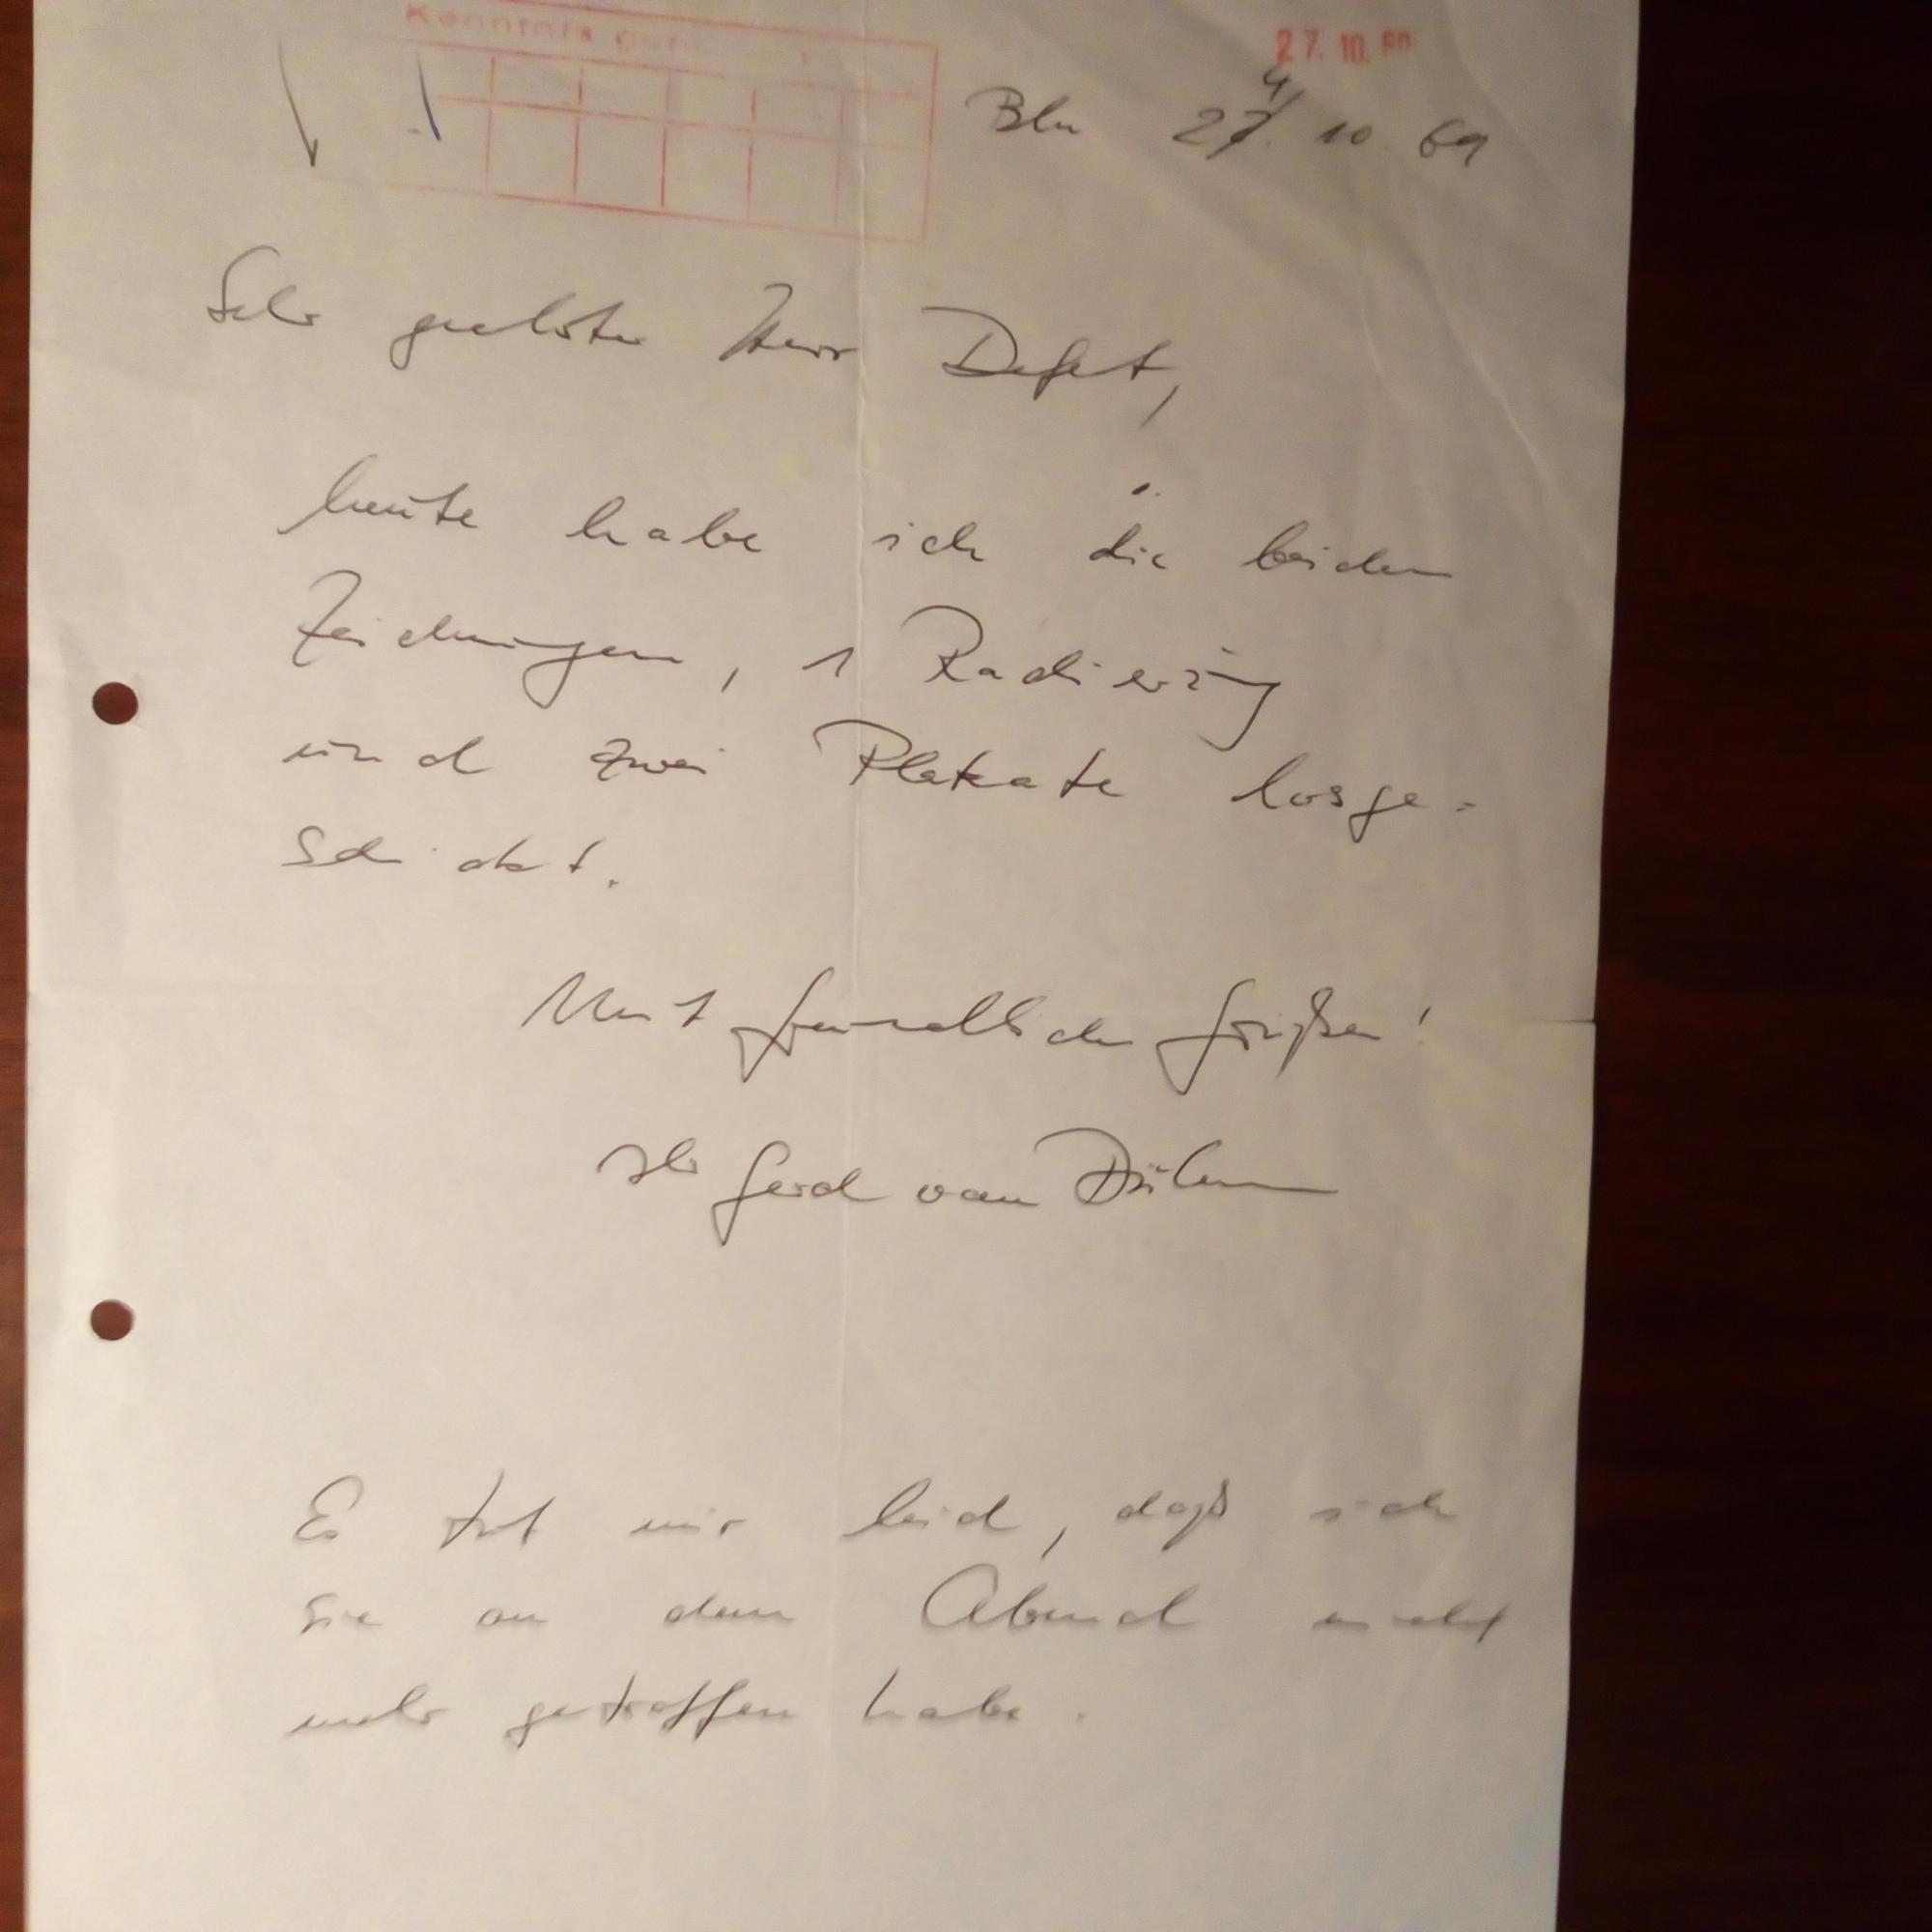 Kenntnis
27. 10. 69
Bln 24. 10. 69
Sehr geehrter Herr Defet,
heute habe ich die beiden
Zeichnungen, 1 Radierung
und zwei Plakate losge-
schickt.
Mit freundlichen Grüßen!
Ihr Gerd van Dülmen
Es tut mir leid, daß ich
sie an dem Abend nicht
mehr getroffen habe.